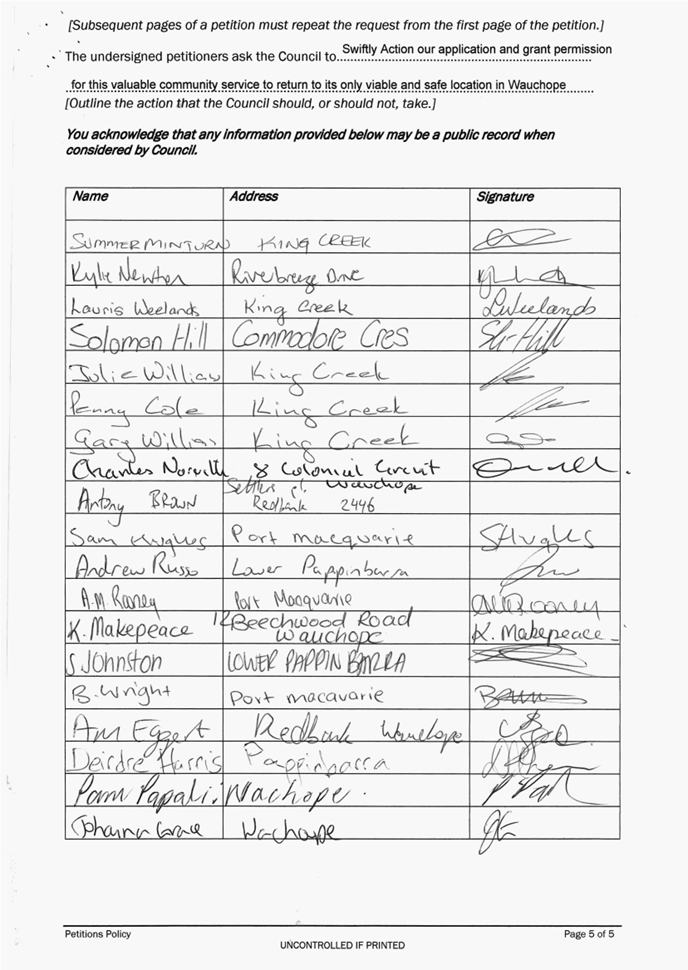 [Subsequent pages of a petition must repeat the request from the first page of the petition.]
The undersigned petitioners ask the Council to Swiftly Action our application and grant permission
for this valuable community service to return to its only viable and safe location in Wauchope
[Outline the action that the Council should, or should not, take.]
You acknowledge that any information provided below may be a public record when
considered by Council.
Name Address Signature
SUMMER MINTURN KING CREEK
Kylie Newton Riverbreeze Drive
Lauris Weelands King Creek LWeelands
Solomon Hill Commodore Cres Hill
Julie William King Creek
Penny Cole King Creek
Gary Willias King Creek
Charles Norville 8 Colonial Circuit
Wauchope
Antony BROWN Settlers pt.
Redbank 2446
Sam Hughes Port macquarie SHughes
Andrew Russo Lower Pappinbarra
A.M. Rooney Port Macquarie AMRooney
K. Makepeace 12 Beechwood Road K. Makepeace
Wauchope
S JOHNSTON LOWER PAPPIN BARRA
B. Wright Port macavarie
Am Eggert Redbank Wauchope
Deirdre Harris Pappinbarra
Pam Papali. Wachope.
Johanna Grace Wachope
Petitions Policy Page 5 of 5
UNCONTROLLED IF PRINTED